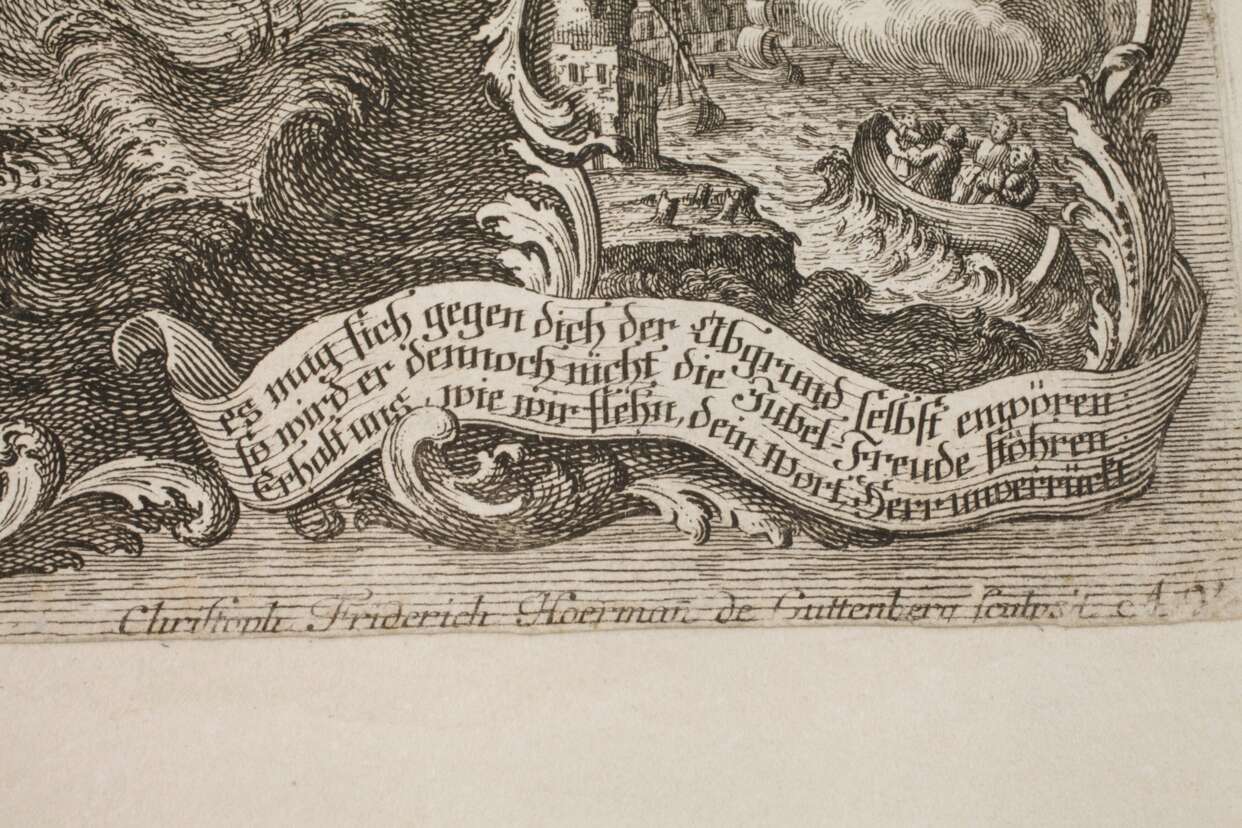 es mag sich gegen dich der Abgrund selbst empören
so wird er dennoch nicht die Jubel-Freude stöhren.
Erhalt uns, wie wir flehn, dein Wort, Herr unverrückt
Christoph Friderich Hoerman̄ de Guttenberg sculpsit A. V.